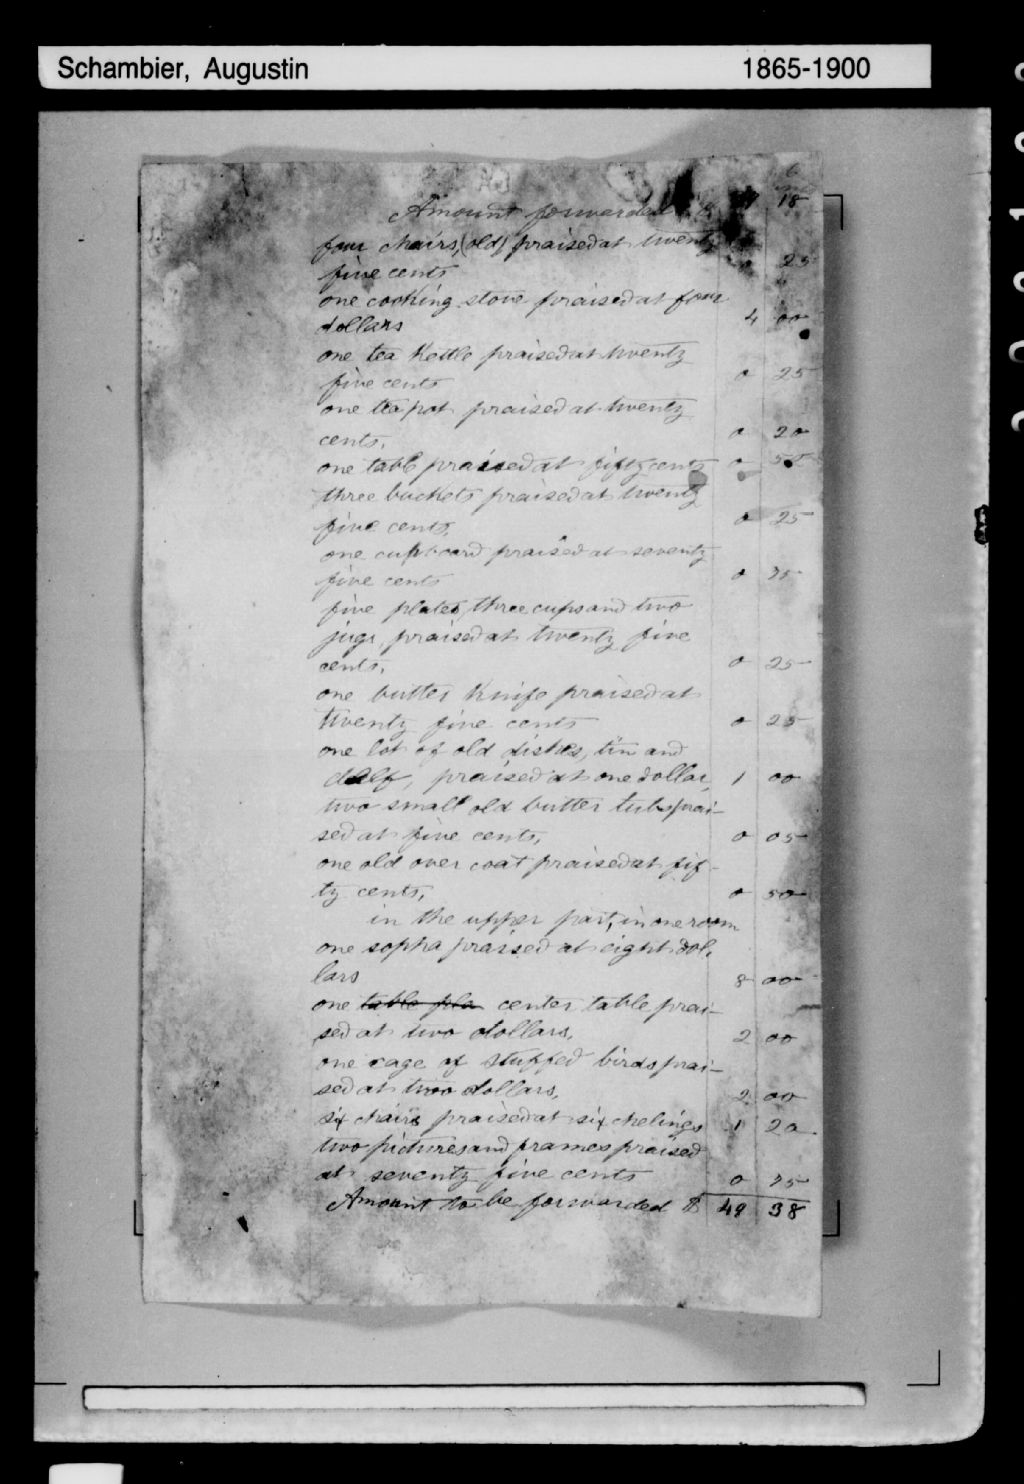 Schambier, Augustin 1865-1900
6
Amount forwarded $ 18
four chairs, (old) praised at twenty
five cents 0 25
one cooking stove praised at four
dollars 4 00
one tea Kettle praised at twenty
five cents 0 25
one tea pot praised at twenty
cents, 0 20
one table praised at fifty cents 0 50
three buckets praised at twenty
five cents, 0 25
one cupboard praised at seventy
five cents 0 75
five plates, three cups and two
jugs, praised at twenty five
cents, 0 25
one butter Knife praised at
twenty five cents 0 25
one lot of old dishes, tin and
delf, praised at one dollar, 1 00
two small old butter tubs prai-
sed at five cents, 0 05
one old over coat praised at fif-
ty cents, 0 50
in the upper part, in one room
one sopha praised at eight dol.
lars 8 00
one table pla center table prai-
sed at two dollars, 2 00
one cage of stuffed birds prai-
sed at two dollars, 2 00
six chairs praised at six chelings 1 20
two pictures and frames praised
at seventy five cents 0 75
Amount to be forwarded $ 49 38